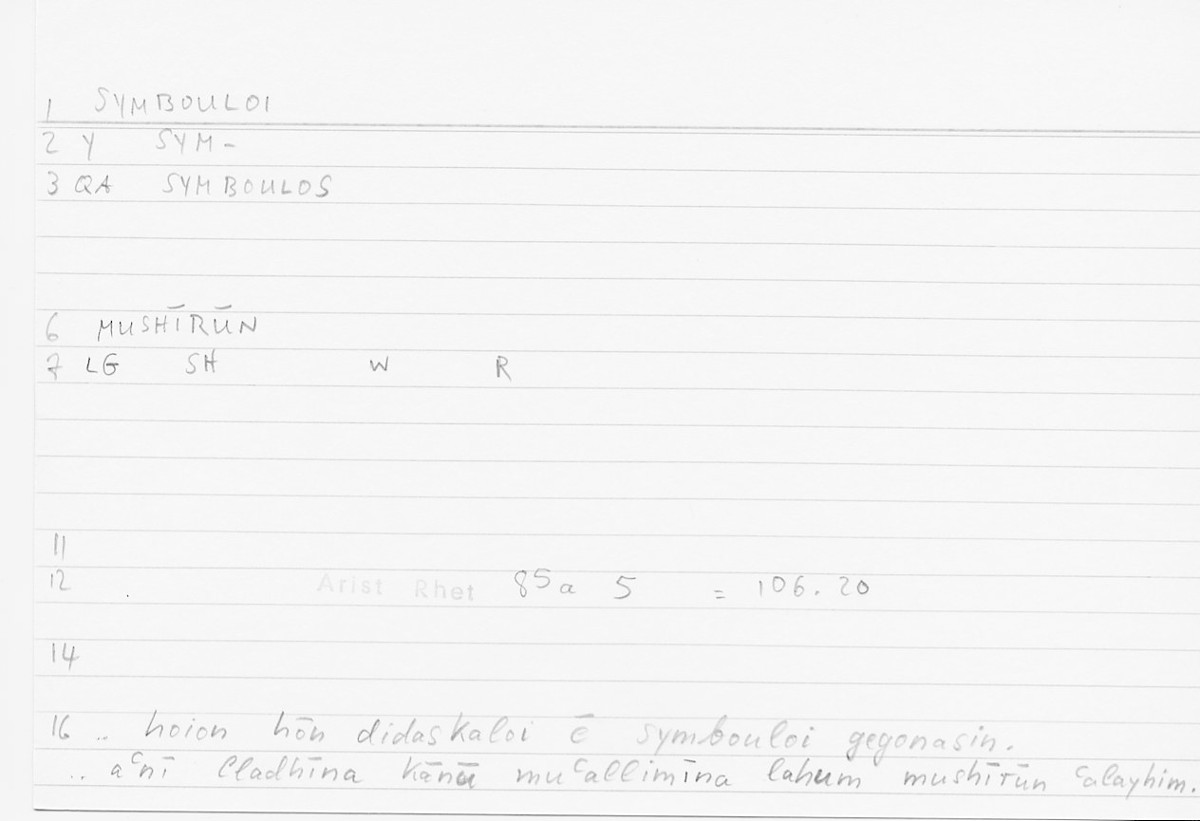 1 SYMBOULOI
2 Y SYM-
3 QA SYMBOULOS
6 MUSHĪRŪN
7 LG SH W R
11
12 . Arist Rhet 85a 5 = 106.20
14
16 .. hoion hōn didaskaloi ē symbouloi gegonasin.
.. aʿnī lladhīna kānū muʿallimīna lahum mushīrūn ʿalayhim.